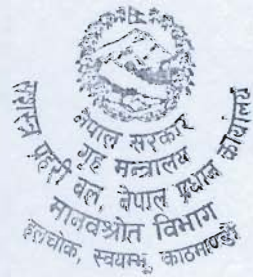 नेपाल सरकार
गृह मन्त्रालय
सशस्त्र प्रहरी बल, नेपाल प्रधान कार्यालय
मानवश्रोत विभाग
हलचोक, स्वयम्भू, काठमाण्डौ